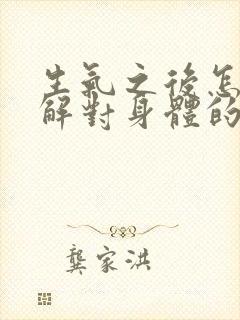 生氣之後怎
解對身體的
龔家洪